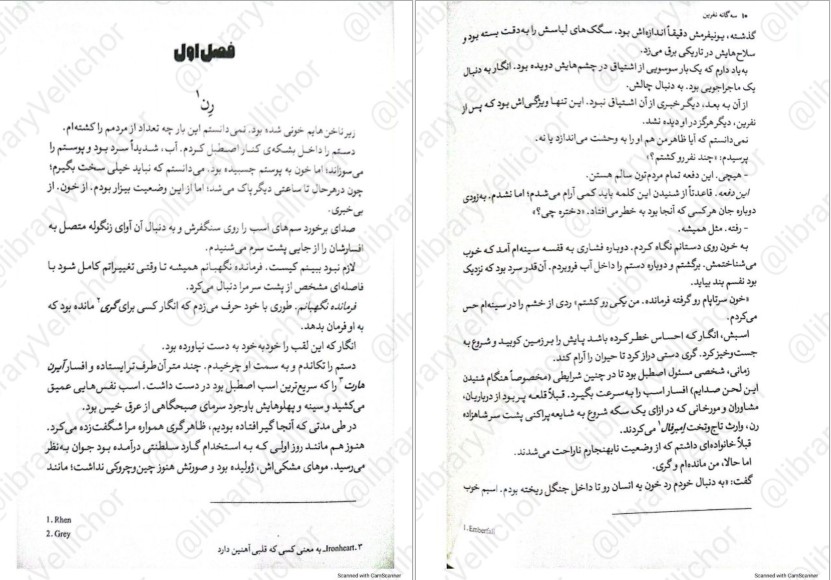 فصل اول
رِن¹
زیر ناخن هایم خونی شده بود. نمی‌دانستم این بار چه تعداد از مردمم را کشته‌ام.
دستم را داخل بشکه‌ی کنار اصطبل کردم. آب، شدیداً سرد بود و پوستم را
می‌سوزاند؛ اما خون به پوستم چسبیده بود. می‌دانستم که نباید خیلی سخت بگیرم؛
چون درهرحال تا ساعتی دیگر پاک می‌شد؛ اما از این وضعیت بیزار بودم. از خون. از
بی‌خبری.
صدای برخورد سم‌های اسب را روی سنگفرش و به دنبال آن آوای زنگوله متصل به
افسارشان را از جایی پشت سرم می‌شنیدم.
لازم نبود ببینم کیست. فرمانده نگهبانم همیشه تا وقتی تغییراتم کامل شود با
فاصله‌ای مشخص از پشت سر مرا دنبال می‌کرد.
فرمانده نگهبانم. طوری با خود حرف می‌زدم که انگار کسی برای گری² مانده بود که
به او فرمان بدهد.
انگار که این لقب را خودبه‌خود به دست نیاورده بود.
دستم را تکاندم و به سمت او چرخیدم. چند متر آن‌طرف‌تر ایستاده و افسار آیرن
هارت³ را که سریع‌ترین اسب اصطبل بود در دست داشت. اسب نفس‌هایی عمیق
می‌کشید و سینه و پهلوهایش باوجود سرمای صبحگاهی از عرق خیس بود.
در طی مدتی که آنجا گیر افتاده بودیم، ظاهر گری همواره مرا شگفت‌زده می‌کرد.
هنوز هم مانند روز اولی که به استخدام گارد سلطنتی درآمده بود جوان به‌نظر
می‌رسید. موهای مشکی‌اش، ژولیده بود و صورتش هنوز چین‌وچروکی نداشت؛ مانند
1. Rhen
2. Grey
۳. Ironheart، به معنی کسی که قلبی آهنین دارد
Scanned with CamScanner
۱۰ سه گانه نفرین
گذشته، یونیفرمش دقیقاً اندازه‌اش بود. سگک‌های لباسش را به‌دقت بسته بود و
سلاح‌هایش در تاریکی برق می‌زد.
به‌یاد دارم که یک‌بار سوسویی از اشتیاق در چشم‌هایش دویده بود. انگار به دنبال
یک ماجراجویی بود. به دنبال چالش.
از آن به بعد، دیگر خبری از آن اشتیاق نبود. این تنها ویژگی‌اش بود که پس از
نفرین، دیگر هرگز در او دیده نشد.
نمی‌دانستم که آیا ظاهر من هم او را به وحشت می‌اندازد یا نه.
پرسیدم: «چند نفر رو کشتم؟»
- هیچی. این دفعه تمام مردم‌تون سالم هستن.
این دفعه. قاعدتاً از شنیدن این کلمه باید کمی آرام می‌شدم؛ اما نشدم. به‌زودی
دوباره جان هر کسی که آنجا بود به خطر می‌افتاد. «دختره چی؟»
- رفته. مثل همیشه.
به خون روی دستانم نگاه کردم. دوباره فشاری به قفسه سینه‌ام آمد که خوب
می‌شناختمش. برگشتم و دوباره دستم را داخل آب فروبردم. آن‌قدر سرد بود که نزدیک
بود نفسم بند بیاید.
«خون سرتاپام رو گرفته فرمانده. من یکی رو کشتم» ردی از خشم را در سینه‌ام حس
می‌کردم.
اسبش، انگار که احساس خطر کرده باشد پایش را بر زمین کوبید و شروع به
جست‌وخیز کرد. گری دستی دراز کرد تا حیوان را آرام کند.
زمانی، شخصی مسئول اصطبل بود تا در چنین شرایطی (مخصوصاً هنگام شنیدن
این لحن صدایم) افسار اسب را به‌سرعت بگیرد. قبلاً قلعه پر بود از درباریان،
مشاوران و مورخانی که در ازای یک سکه شروع به شایعه‌پراکنی پشت سر شاهزاده
رن، وارث تاج‌وتخت امبرفال¹ می‌کردند.
قبلاً خانواده‌ای داشتم که از وضعیت نابهنجارم ناراحت می‌شدند.
اما حالا، من مانده‌ام و گری.
گفت: «به دنبال خودم رد خون یه انسان رو تا داخل جنگل ریخته بودم. اسبم خوب
1. Emberfall
Scanned with CamScanner
@libraryvellichor